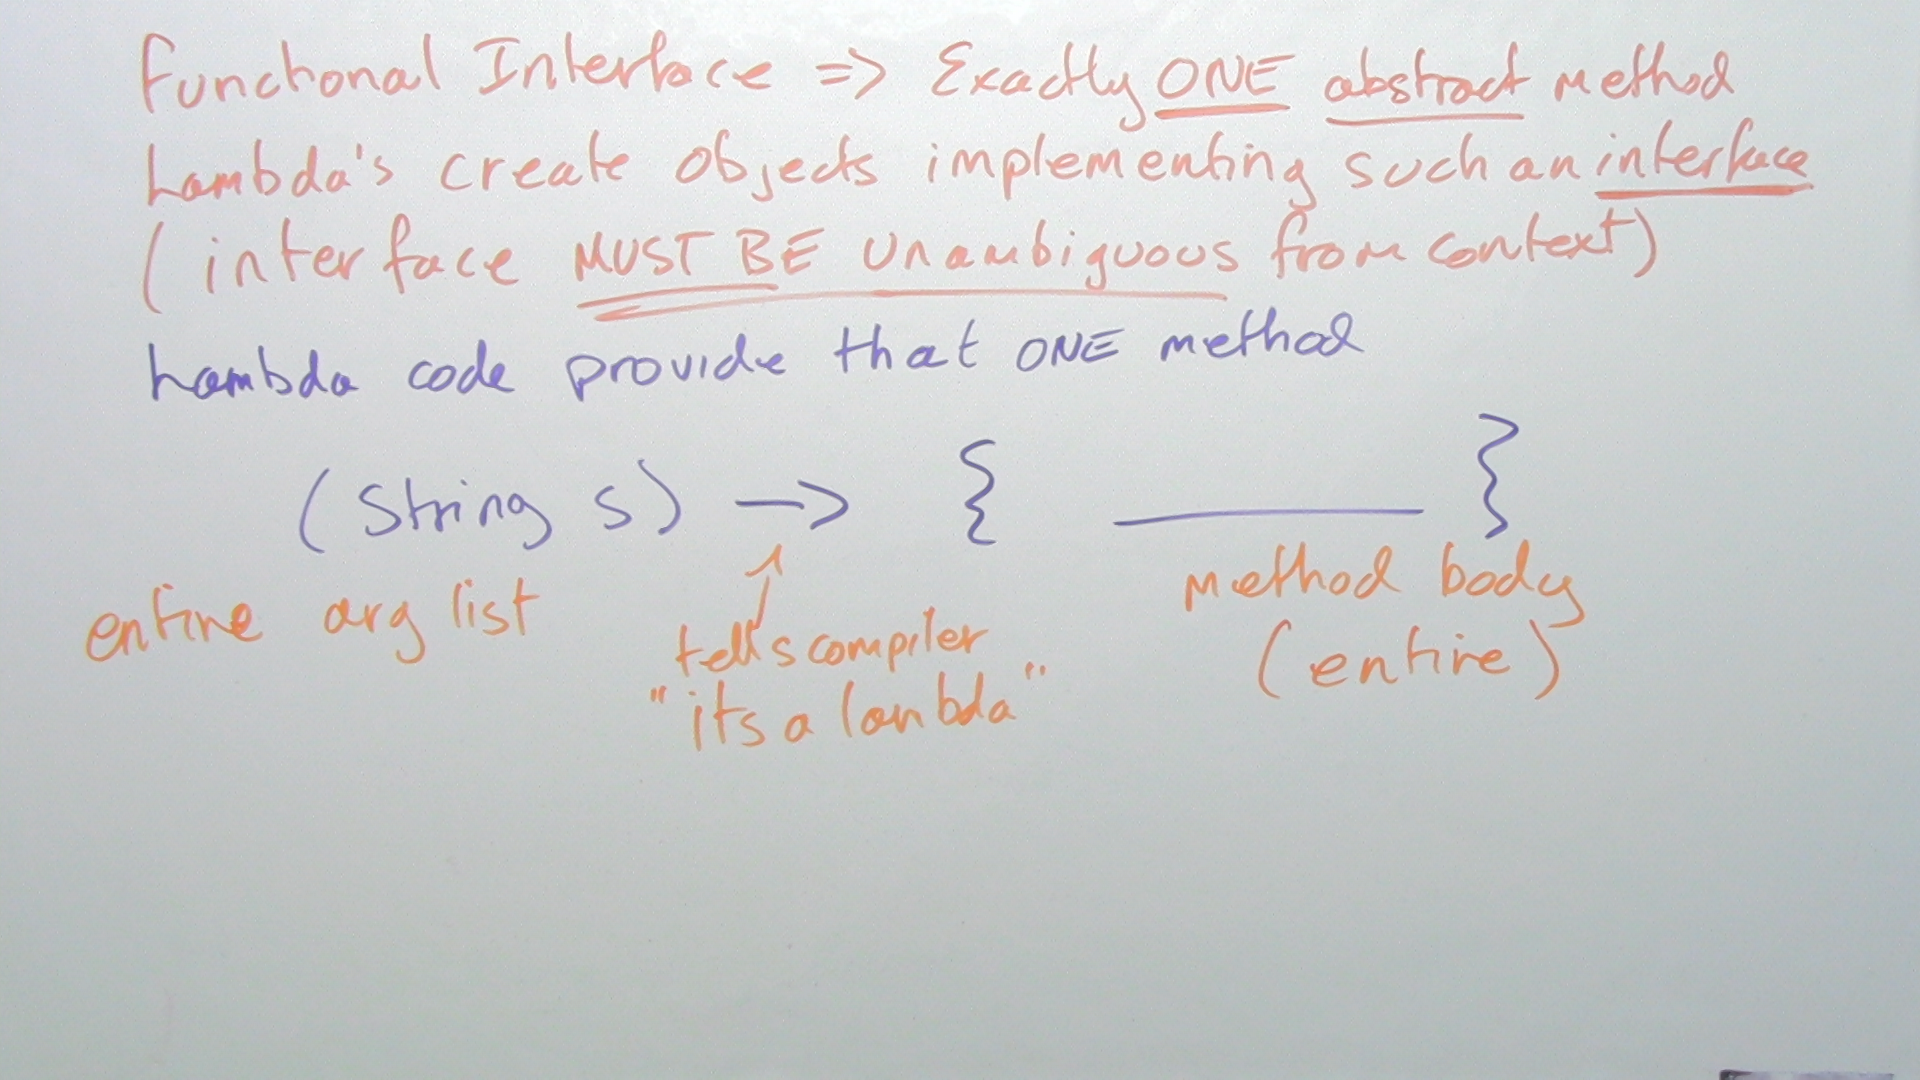 Functional Interface => Exactly ONE abstract method
Lambda's create objects implementing such an interface
(interface MUST BE unambiguous from context)
Lambda code provide that ONE method
(String s) -> { ______ }
entire arg list
tells compiler
"its a lambda"
method body
(entire)